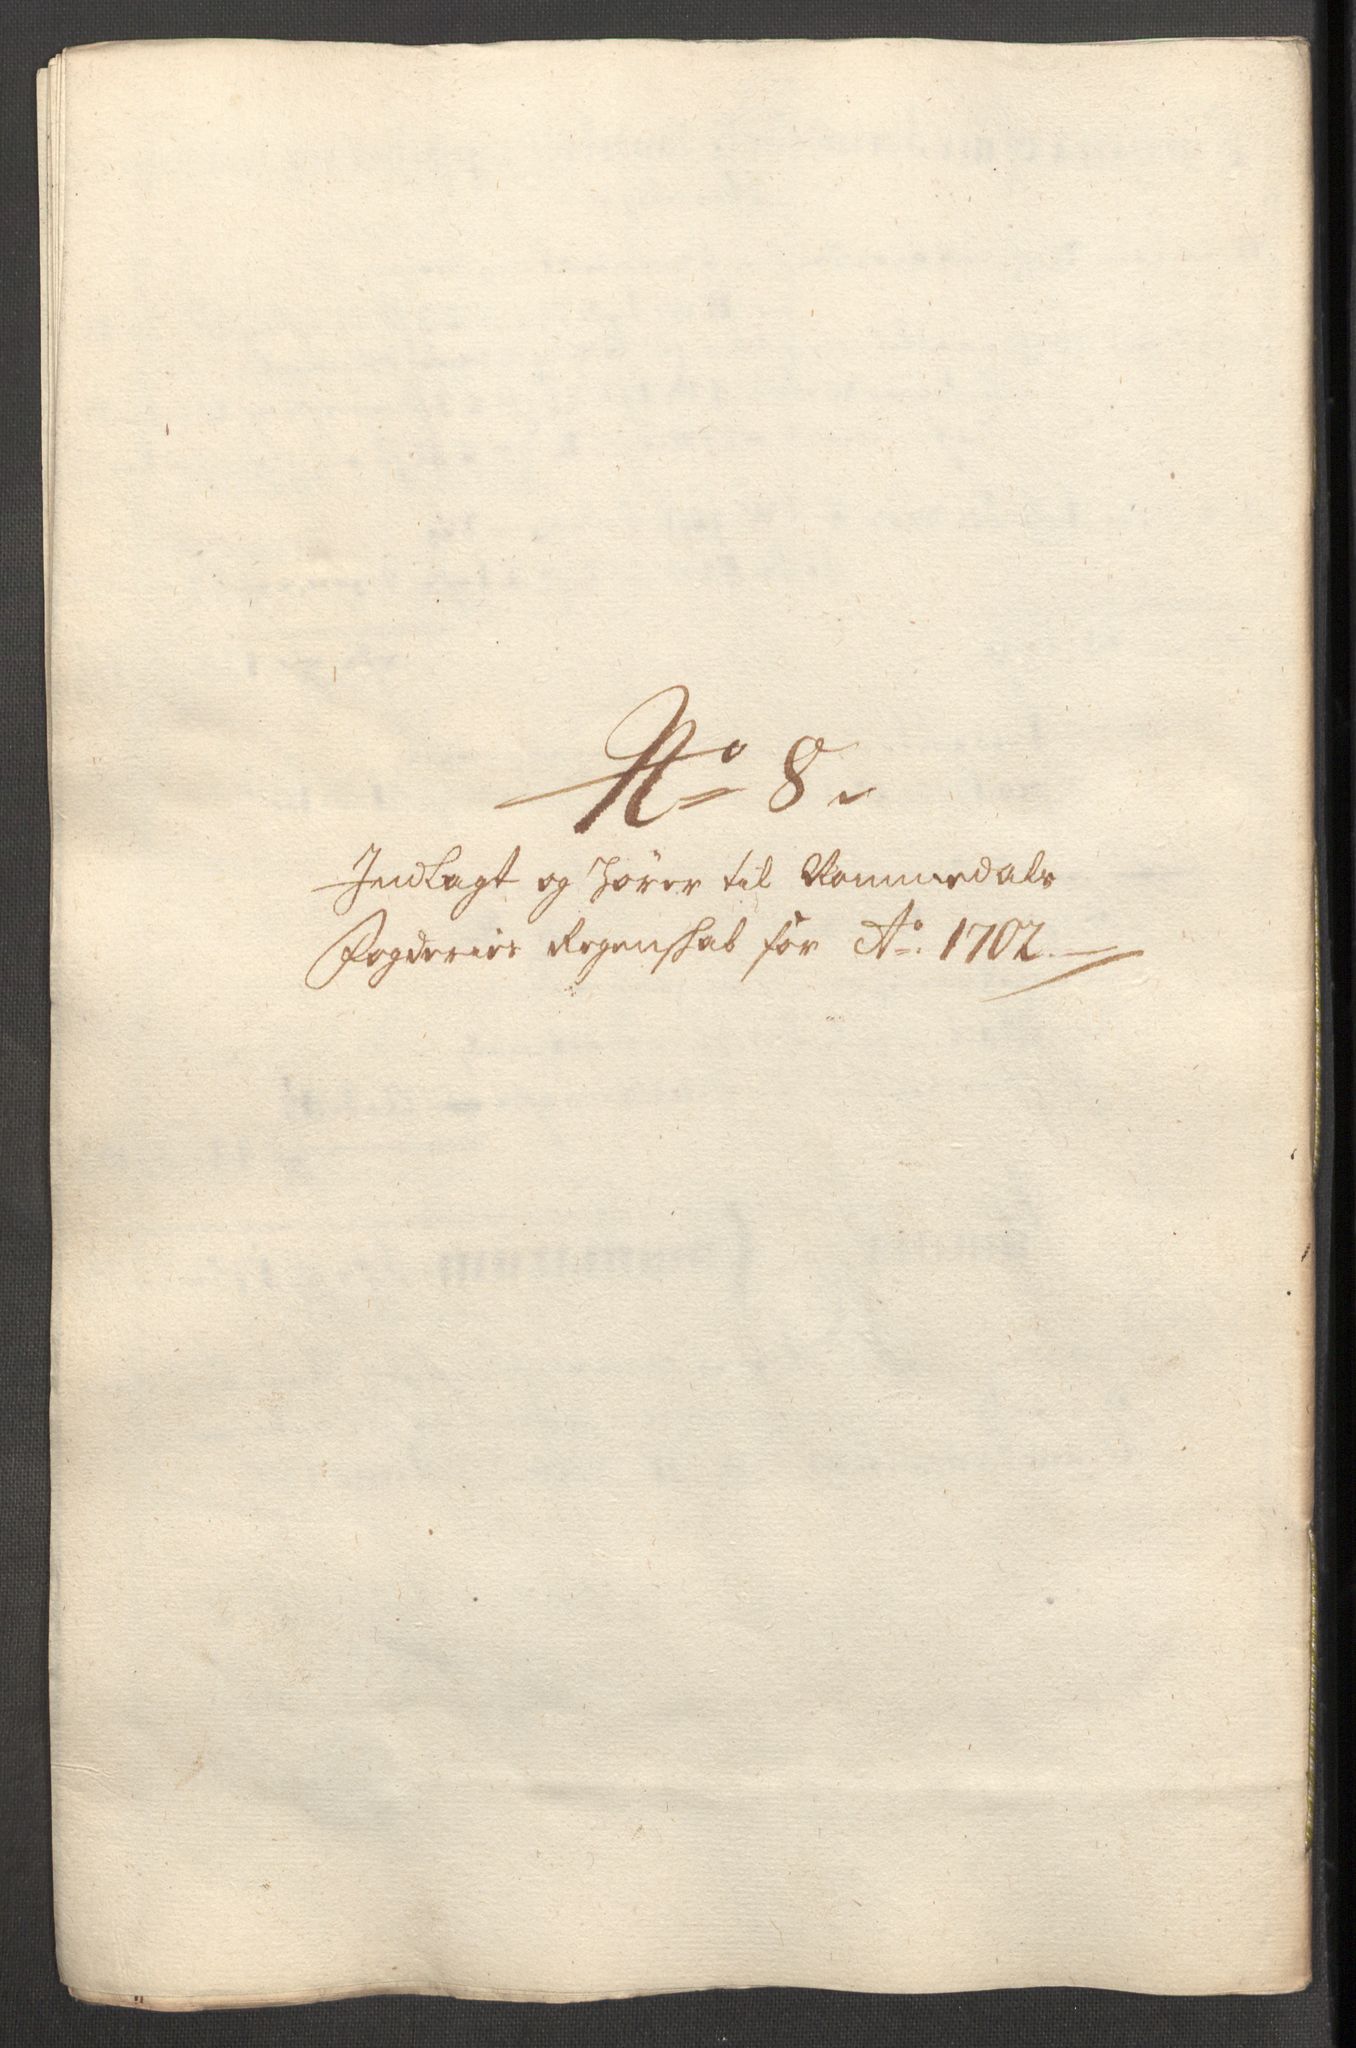 No 8.
Indlagt og hører til Rommedals
Fogderies Regenskab for Ao. 1702.